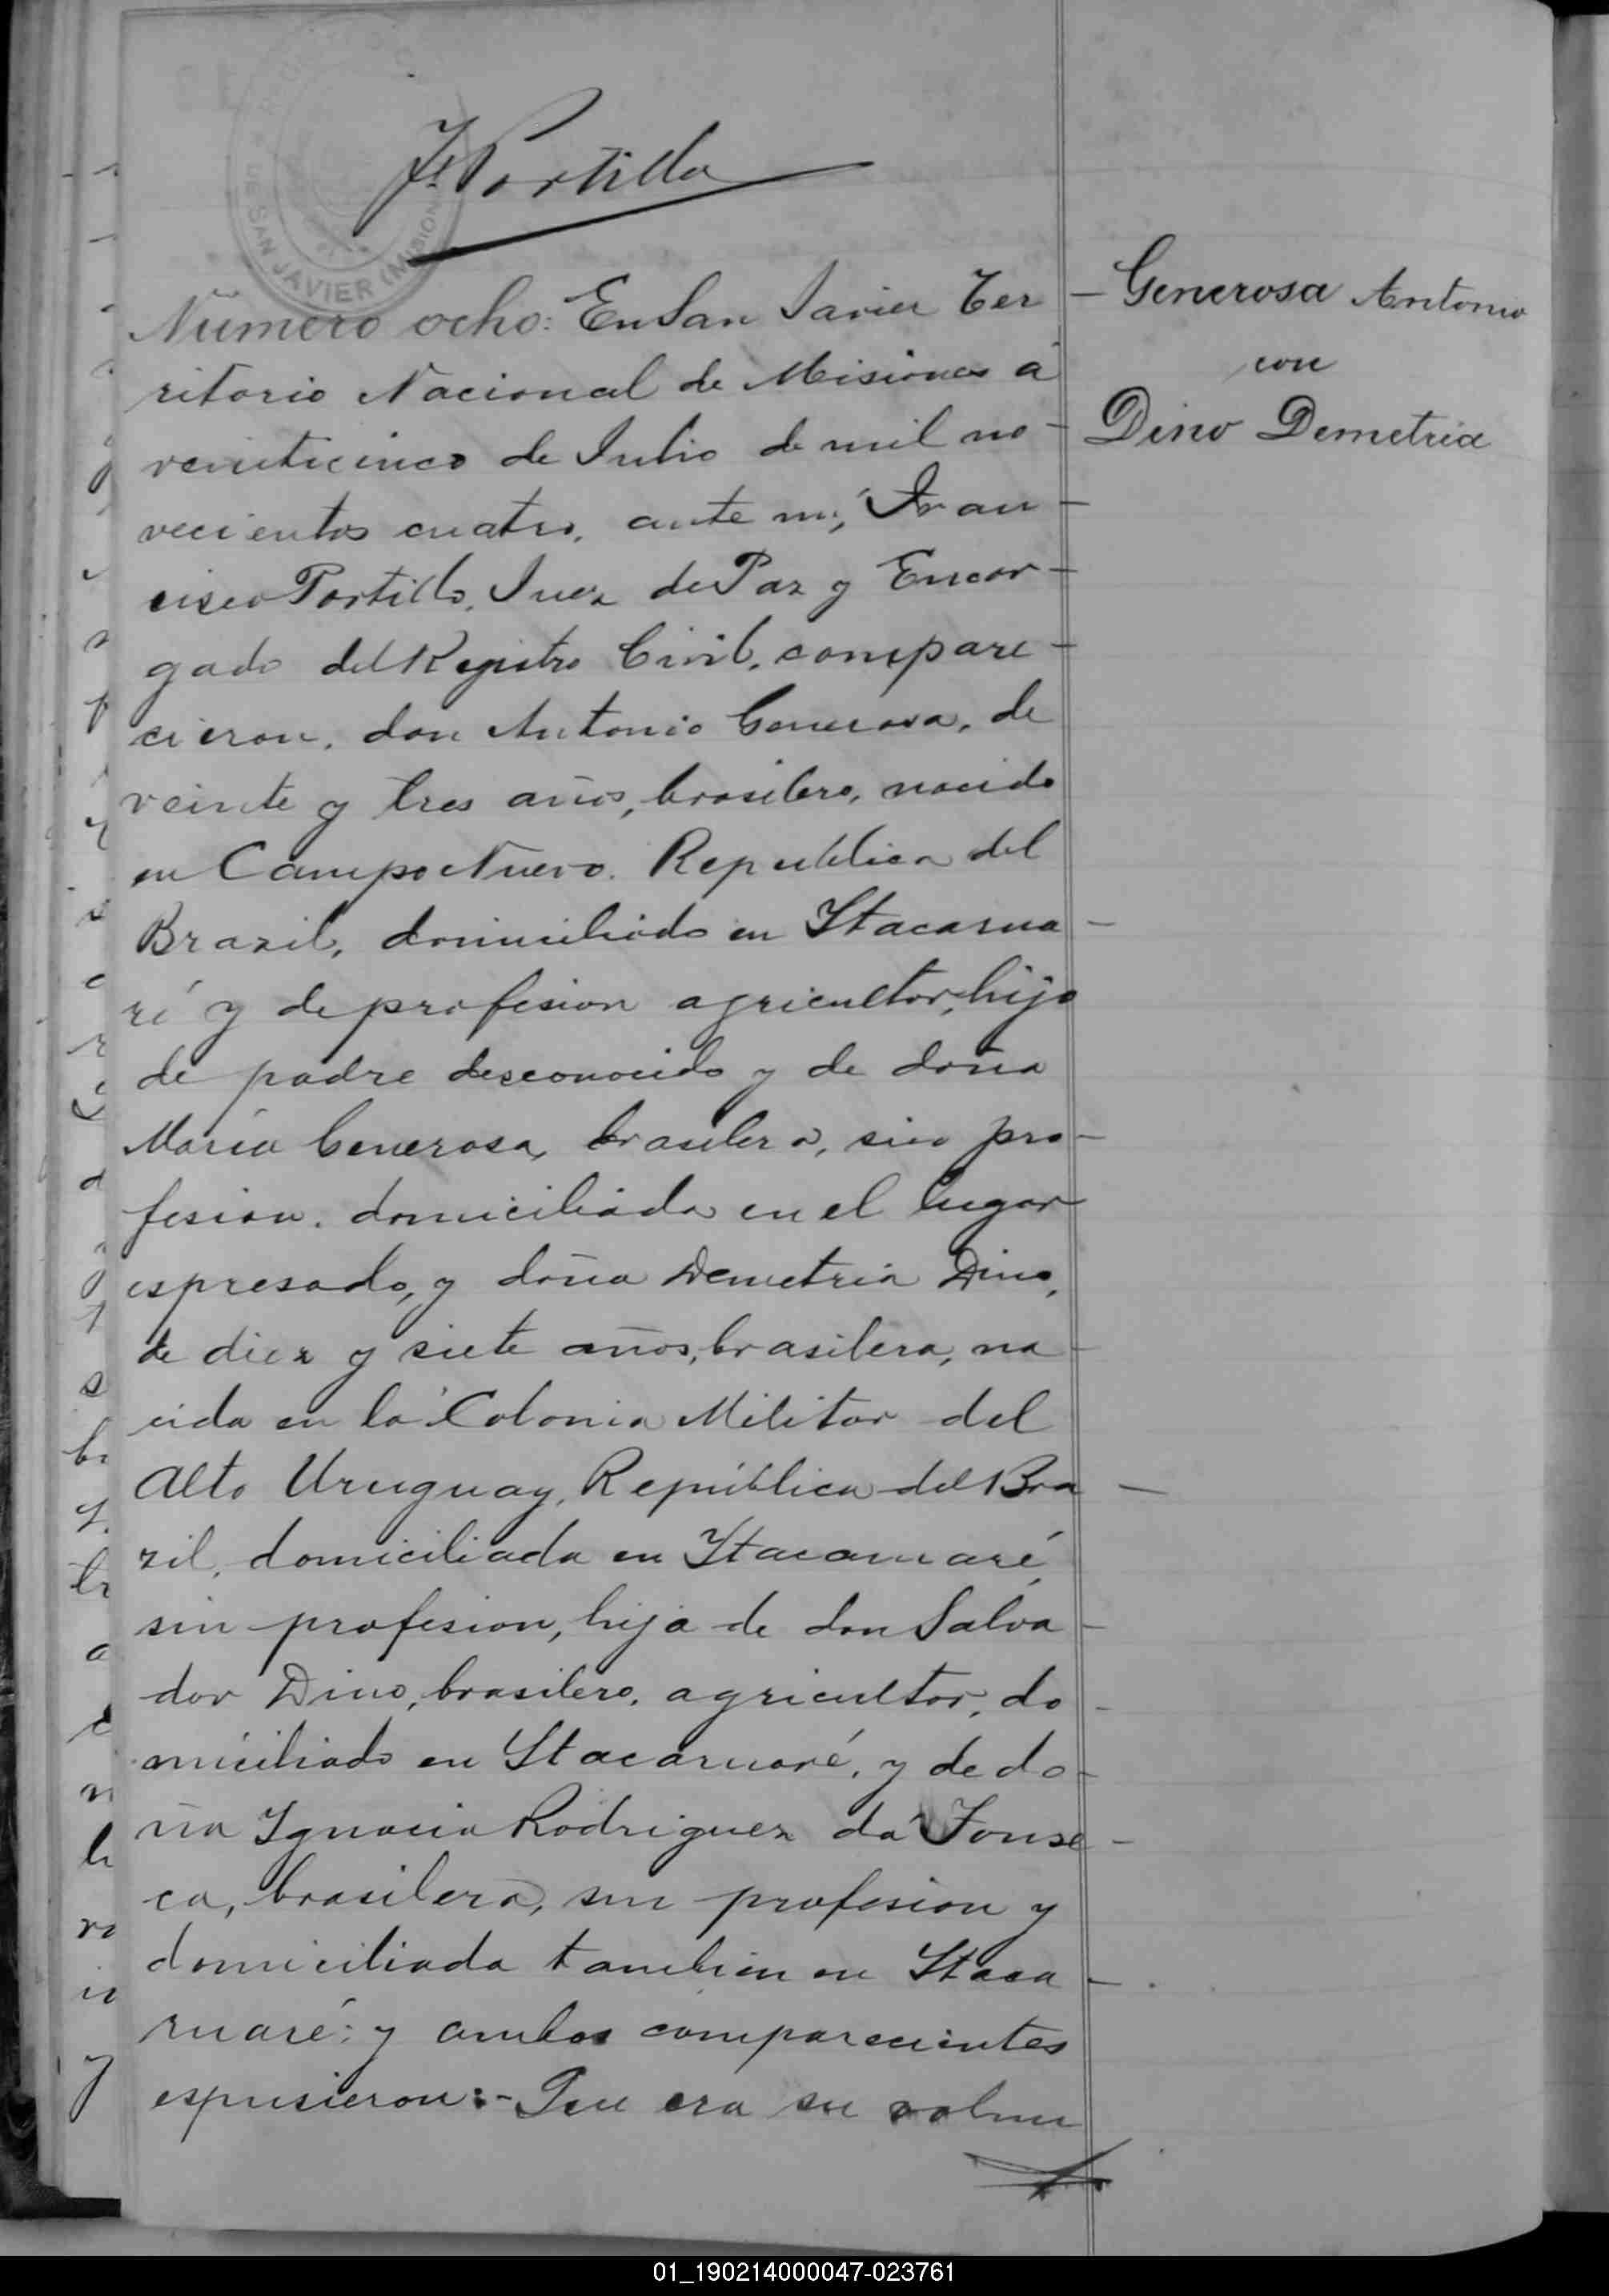 F. Portillo
DE SAN JAVIER (MISIONES
Número ocho: En San Javier Ter
ritorio Nacional de Misiones á
veinticinco de Julio de mil no-
vecientos cuatro, ante mi, Fran-
cisco Portillo, Juez de Paz y Encar-
gado del Registro Civil, compare-
cieron, don Antonio Generosa, de
veinte y tres años, brasilero, nacido
en Campo Nuevo. Republica del
Brazil, domiciliado en Itacarua-
ré y de profesion agricultor, hijo
de padre desconocido y de doña
María Generosa, brasilera, sin pro-
fesion, domiciliada en el lugar
espresado, y doña Demetria Dino,
de diez y siete años, brasilera, na-
cida en la Colonia Militar del
Alto Uruguay, República del Bra-
zil, domiciliada en Itacaruaré,
sin profesion, hija de don Salva-
dor Dino, brasilero, agricultor, do-
miciliado en Itacaruaré, y de do-
ña Ignacia Rodriguez da Fonse-
ca, brasilera, sin profesion y
domiciliada tambien en Itaca-
ruaré; y ambos comparecientes
espusieron:- Que era su volun
Generosa Antonio
con
Dino Demetria
01_190214000047-023761